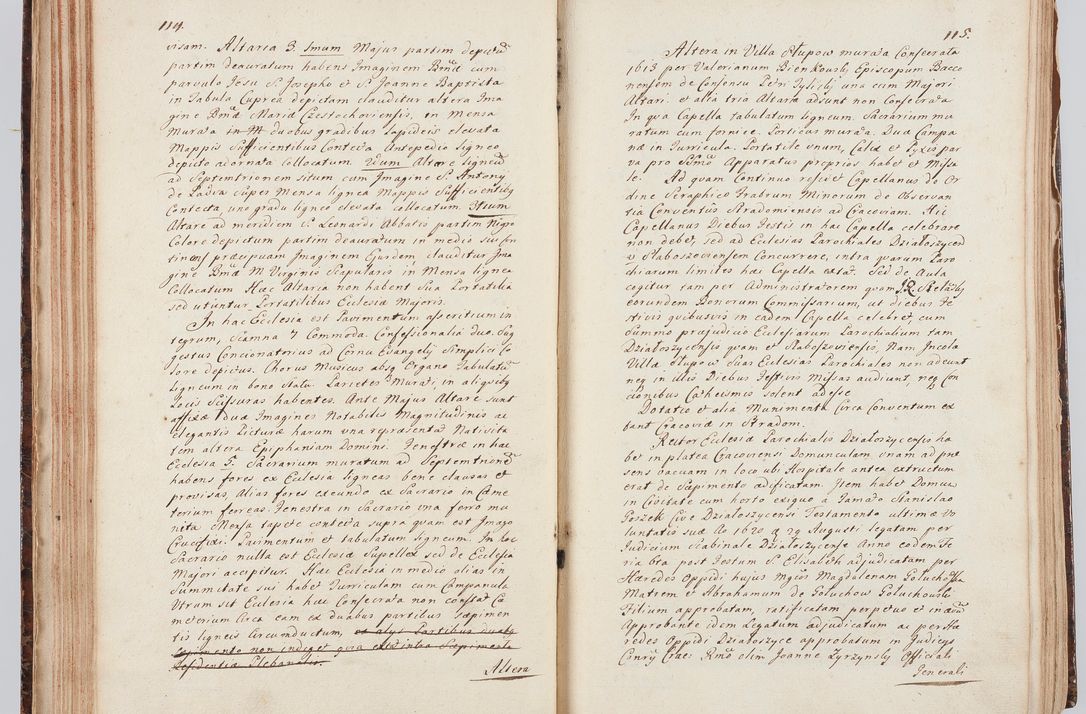 114.
visam. Altaria 3. 1mum Majus partim depictũ
partim deauratum habens Imaginem Bmæ cum
parvulo Jesu S. Josepho et S. Joanne Baptista
in Tabula Cuprea depictam clauditur altera Ima
gine Bmæ Mariæ Częstochoviensis, in Mensa
Murata in M duobus gradibus lapideis elevata
Mappis Sufficientibus Contecta Antepedio ligneo
depicto adornata Collocatum. 2dum Altare ligneũ
ad Septemtrionem situm cum Imagine S. Antonij
de Padva Super Mensa lignea Mappis Sufficientibq
Contecta uno gradu ligneo elevata collocatum. 3tium
Altare ad meridiem S. Leonardi Abbatis partim Nigro
Colore depictum partim deauratum in medio sui Con
tinens præcipuam Imaginem Ejusdem, clauditur Ima
gine Bmæ M. Verginis Scapularis in Mensa lignea
Collocatum Hæc Altaria non habent Sua Portatilia
sed utuntur Portatilibus Ecclesiæ Majoris.
In hac Ecclesia est Pavimentum asseritium in
tegrum, Scamna 7 Commoda. Confessionalia duo. Sug
gestus Concionatorius ad Cornu Evangelij Simplici Co
lore depictus. Chorus Musicus absq Organo Tabulatũ
ligneum in bono statu. Parietes Murati in aliquibq
Locis Scissuras habentes. Ante Majus Altare sunt
affixæ duæ Imagines Notabilis Magnitudinis ac
elegantis Picturæ harum una representat Nativita
tem altera Epiphaniam Domini. Fenestræ in hac
Ecclesia 5. Sacrarium muratum ad Septemtrionẽ
habens fores ex Ecclesia ligneas bene clausas et
provisas, alias fores exeundo ex Sacrario in Cœme
terium ferreas. Fenestra in Sacrario una ferro mu
nita Mensa tapete contecta supra quam est Imago
Crucifixi. Pavimentum et tabulatum ligneum. In hoc
Sacrario nulla est Ecclesiæ Supellex sed de Ecclesia
Majori accipitur. Hæc Ecclesia in medio alias in
Summitate sui habet Turriculam cum Campanula
Utrum sit Ecclesia hæc Consecrata non constat Cæ
meterium circa eam ex duabus partibus Sæpimen
tis ligneis circumductum, et alijs Partibus duabq
Sæpimento non indiget quia est intra Sæpimenta
Residentia Plebanalis.
Altera
115.
Altera in Villa Słupow murata Consecrata
1613 per Valerianum Bienkowski Episcopum Bacco
nensem de Consensu Petri Tylicki una cum Majori
Altari. et alia tria Altaria adsunt non Consecrata
In qua Capella tabulatum ligneum. Sacrarium mu
ratum cum fornice. Porticus murata. Duæ Campa
næ in Turricula. Portatile unum, Calix et Pyxis par
va pro Ssmo Apparatus proprios habet et Missa
le. Ad quam Continuo residet Capellanus de Or
dine Seraphico Fratrum Minorum de Observan
tia Conventus Stradomiensis ad Cracoviam. Hic
Capellanus Diebus Festis in hac Capella celebrare
non debet, sed ad Ecclesias Parochiales Działoszycen̄
v Slaboszoviensem Concurrere, intra quarum Paro
chiarum limites hæc Capella extat. Sed de Aula
cogitur tam per Administratorem quam J. R. Stelisky
eorundem Bonorum Commissarium, ut diebus Fe
stivis quibusvis in eadem Capella celebret cum
Summo præjudicio Ecclesiarum Parochialium tam
Działoszycensis quam et Slaboszoviensis, Nam Incolæ
Villæ Słupow Suas Ecclesias Parochiales non adeunt
neq in illis Diebus Festivis Missas audiunt, neq Con
cionibus Cathecismis solent adesse.
Dotatio et alia Munimenta circa Conventum ex
tant Cracoviæ in Stradom.
Rector Ecclesiæ Parochialis Działoszycensis ha
bet in platea Cracoviensi Domunculam unam ad præ
sens vacuam in loco ubi Hospitale antea extructum
erat de Sæpimento ædificatam. Item habet Domum
in Civitate cum horto exiguo a Famato Stanislao
Poszek Cive Działoszycensi Testamento ultimæ vo
luntatis suæ A̅o 1620 d 29 Augusti legatam per
Judicium Scabinale Działoszycense Anno eodem Fe
ria 6ta post Festum S. Elisabeth adjudicatam per
Hæredes Oppidi hujus Mgcos Magdalenam Goluchoską
Matrem et Abrahamum de Goluchow Goluchowski
Filium approbatam, ratificatam perpetuo et in ævũ
Approbante idem Legatum adjudicatum ac per Hæ
redes Oppidi Działoszyce approbatum in Judicijs
Conrij Crac: Rmo olim Joanne Zyrzynsky Officiali
Generali